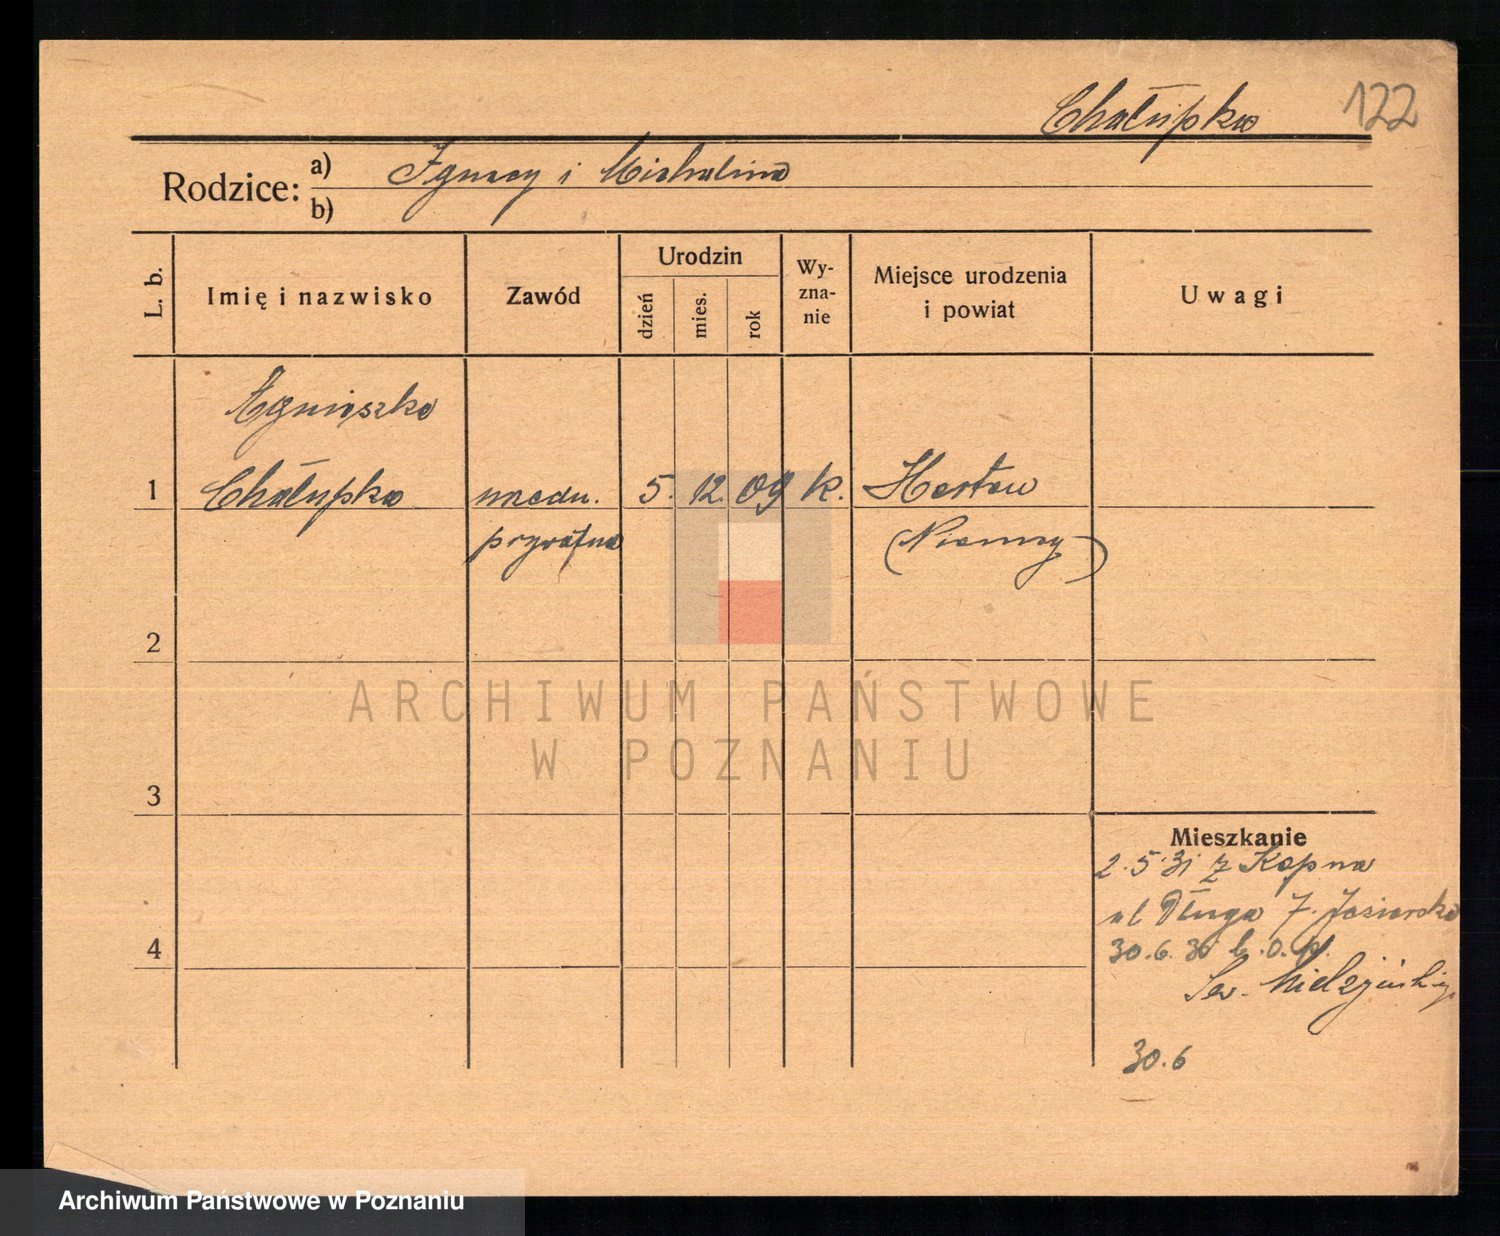 Chałupka 122
Rodzice: a) Ignacy i Michalina
b)
L. b. Imię i nazwisko Zawód Urodzin dzień mies. rok Wy-zna-nie Miejsce urodzenia i powiat Uwagi
Agnieszka
1 Chałupka 5. 12. 09 k. Herten
prywatna (Niemcy)
2
ARCHIWUM PAŃSTWOWE
W POZNANIU
3
Mieszkanie
2.5.31 z Kępna
ul Długa 7.
4 30.6.
30.6
Archiwum Państwowe w Poznaniu